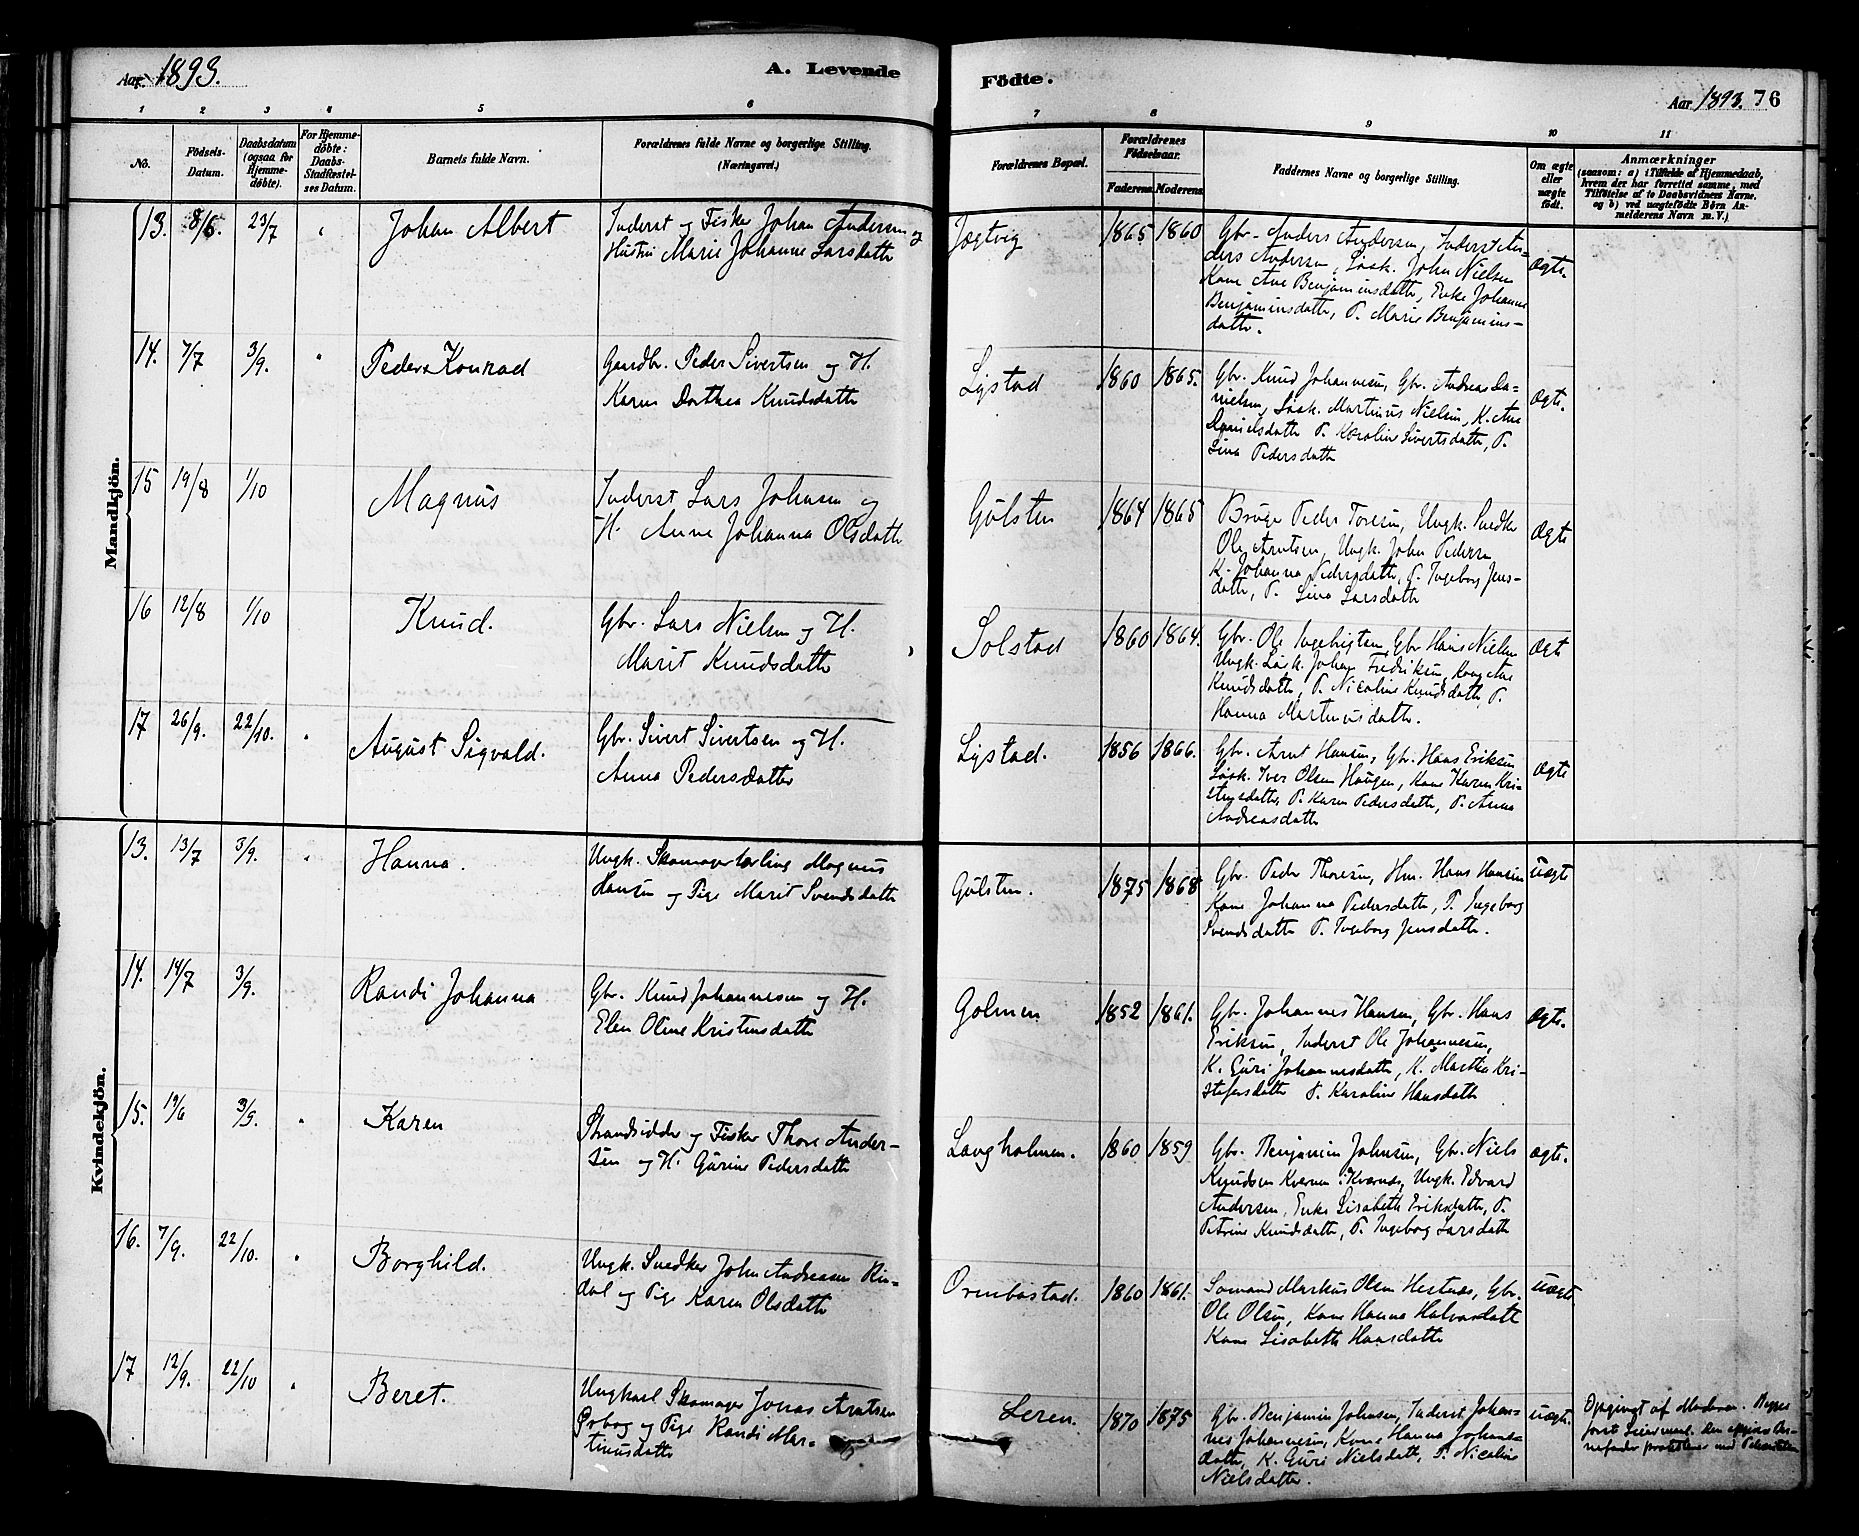 Aar 1893.
A. Levende
1 2 3 4 5 6
No.
Födsels-
Datum.
Daabsdatum
(ogsaa for
Hjemme-
döbte).
For Hjemme-
döbte:
Daabs-
Stadfæstel-
ses Datum.
Barnets fulde Navn.
Forældrenes fulde Navne og borgerlige Stilling.
(Næringsvei.)
Mandkjön.
13. 8/6. 23/7 Johan Albert
Inderst og Fisker Johan Andersen og
Hustru Marie Johanne Larsdatter
14. 7/7 3/9. Peder Konrad
Gaardbr. Peder Sivertsen og H.
Karen Dorthea Knudsdatter
15 19/8 1/10 Magnus
Inderst Lars Johnsen og
H. Anne Johanna Olsdatter
16 12/8 1/10 Knud.
Gbr. Lars Nielsen og H.
Marit Knudsdatter
17 26/9. 22/10. August Sigvald.
Gbr. Sivert Sivertsen og H.
Anna Pedersdatter
Kvindekjön.
13. 13/7 3/9. Hanna.
Ungk. Skomagerlærling Magnus
Hansen og Pige Marit Svendsdatter
14. 14/7 3/9. Randi Johanna
Gbr. Knud Johannesen og H.
Elen Oline Kristensdatter
15. 19/6 3/9. Karen
Strandsidder og Fisker Thore Ander-
sen og H. Gurine Pedersdatter
16. 7/9. 22/10. Borghild.
Ungk. Snedker John Andreasen Rin-
dal og Pige Karen Olsdatter
17 12/9. 22/10 Beret.
Ungkarl Skomager Jonas Arntsen
Ørbog og Pige Randi Mar-
tinusdatter
Födte.
Aar 1893. 76
7 8 9 10 11
Forældrenes Bopæl.
Forældrenes
Födselsaar.
Faderens. Moderens.
Faddernes Navne og borgerlige Stilling.
Om ægte
eller
uægte
födt.
Anmærkninger
(saasom: a) i Tilfælde af Hjemmedaab,
hvem der har forrettet samme, med
Tilföielse af to Daabsvidners Navne.
og b) ved uægtefödte Börn An-
melderens Navn m. V.)
Jægtvig 1865 1860 Gbr. Anders Andersen, Inderst An-
ders Andersen, Løsk. John Nielsen
Kone Ane Benjaminsdatter, Enke Johanne
Benjaminsdatter, P. Marie Benjamins-
datter.
Ægte.
Lystad 1860 1865. Gbr. Knud Johannesen, Gbr. Andreas Da-
nielsen, Løsk. Martinus Nielsen, K. Ane
Danielsdatter P. Karoline Sivertsdatter, P.
Lina Pedersdatter
Ægte.
Gulsten 1864 1865 Bruger Peder Toresen, Ungk. Snedker
Ole Arntsen, Ungk. John Pedersen
K. Johanna Pedersdatter, P. Ingeborg Jens-
datter, P. Lina Larsdatter
Ægte
Solstad 1860 1864. Gbr. Ole Ingebrigtsen, Gbr Hans Nielsen
Ungk. Løsk. Johan Fredriksen, Kone Ane
Knudsdatter, P. Nicoline Knudsdatter, P.
Hanna Martinusdatter.
Ægte
Lystad. 1856 1866. Gbr. Arnt Hansen, Gbr. Hans Eriksen
Løsk. Iver Olsen Haugen, Kone Karen Kri-
stensdatter, P. Karen Pedersdatter, P. Anna
Andreasdatter
Ægte
Gulsten. 1875 1868 Gbr. Peder Thoresen, Hm. Hans Hansen
Kone Johanna Pedersdatter, P. Ingeborg
Svendsdatter P. Ingeborg Jensdatter.
Uægte
Golmen 1852 1861. Gbr. Johannes Hansen, Gbr. Hans
Eriksen, Inderst Ole Johannesen,
K. Guri Johannesdatter, K. Marthe Kri-
stofersdatter P. Karoline Hansdatter
Ægte.
Langholmen. 1860 1859 Gbr. Benjamin Johnsen, Gbr. Niels
Knudsen Kvernen i Kvernæs, Ungk. Edvard
Andersen, Enke Lisabeth Eriksdatter, P.
Petrine Knudsdatter, P. Ingeborg Larsdatter
Ægte.
Orenbostad. 1860 1861. Sømand Markus Olsen Hestnæs, Gbr.
Ole Olsen, Kone Hanna Halvorsdatter
Kone Lisabeth Hansdatter
Uægte
Leren. 1870 1875 Gbr. Benjamin Johnsen, Inderst Johan-
nes Johannesen, Kone Hanna Johans-
datter, K. Guri Nielsdatter, P. Nicoline
Nielsdatter.
Uægte.
Opgivet af Moderen.
først Leiermaal. Den opgivne Bar-
nefader